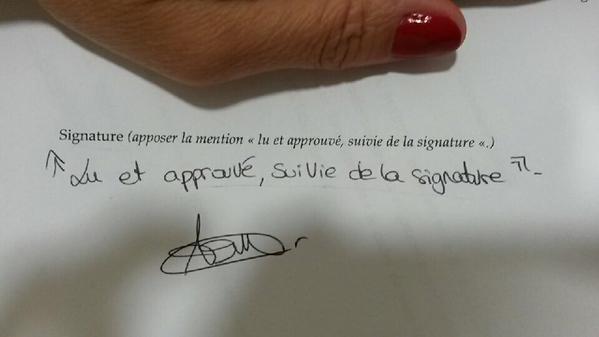 Signature (apposer la mention « lu et approuvé, suivie de la signature «.)
Lu et approuvé, suivie de la signature